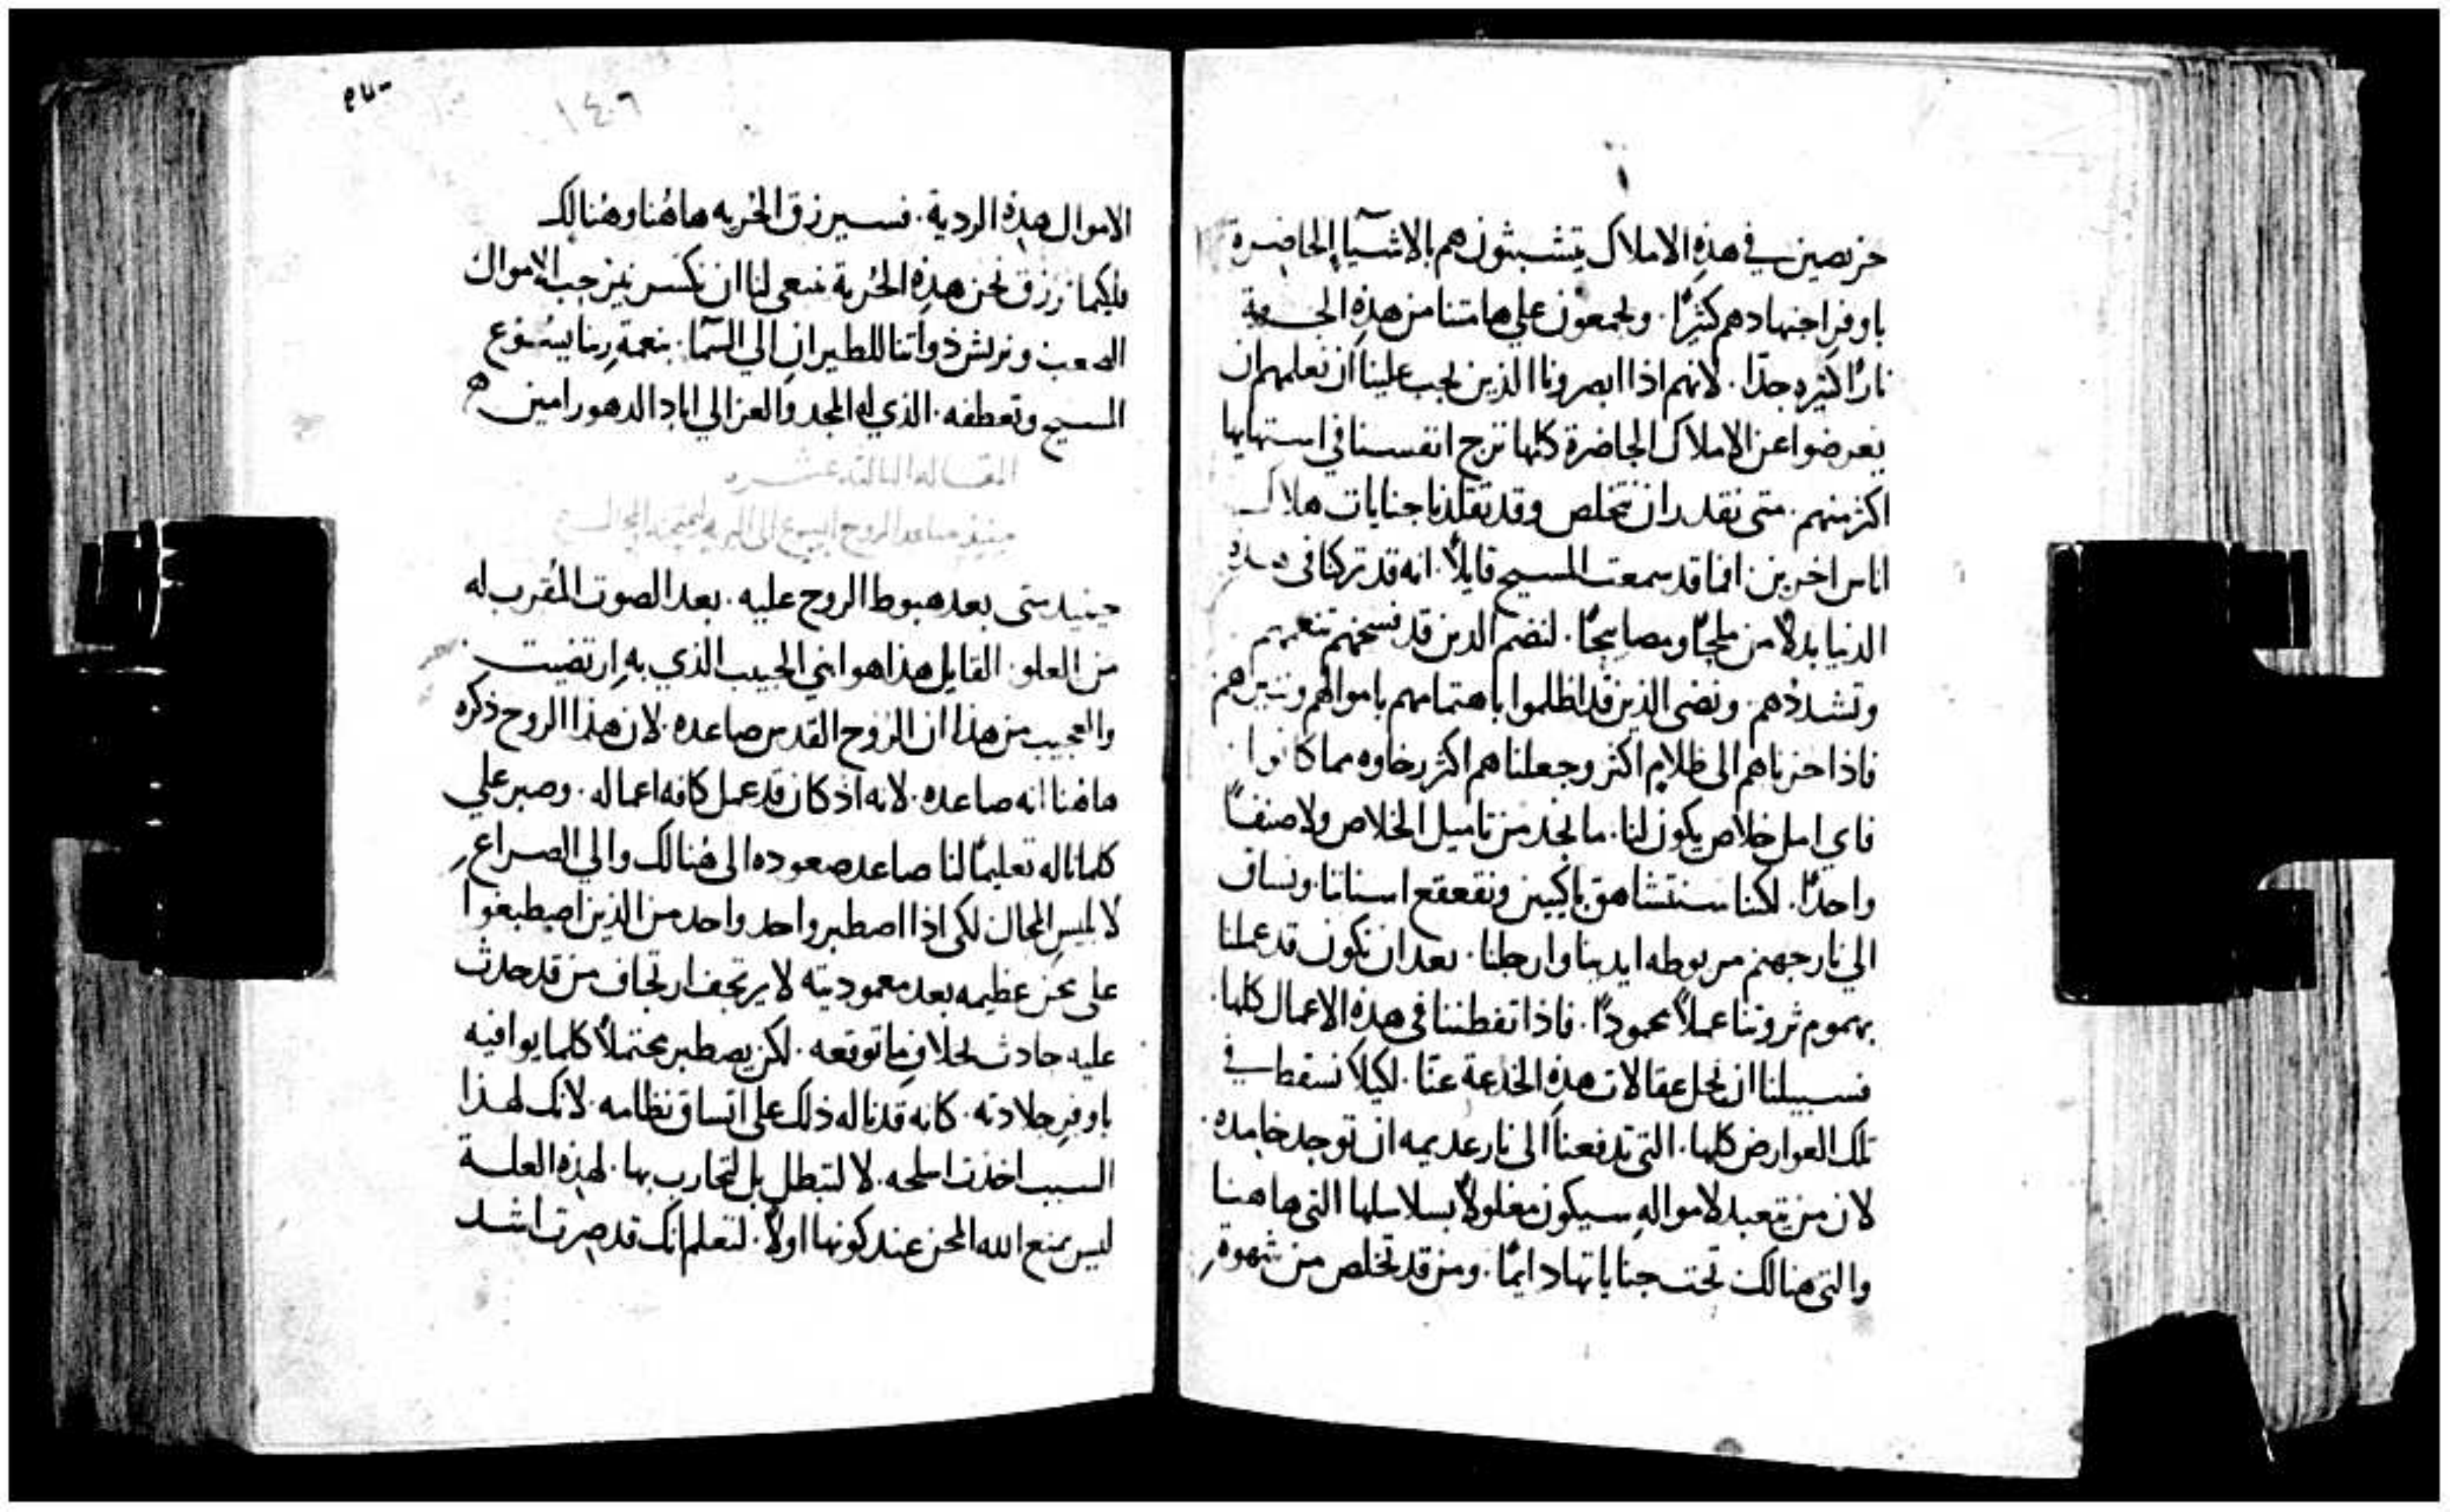 حريصين في هذه الاملاك يتشبثون هم بالاشيآ الحاضرة
باوفر اجتهادهم كثيرًا. ويجمعون علي هامتنا من هذه الجهة
نارًا كثيره جدًا. لانهم اذا ابصرونا الذين يجب علينا ان نعلمهم ان
يعرضوا عن الاملاك الحاضرة كلها نزج انفسنا في استهايها
اكثر منهم. متى نقدر ان نتخلص وقد تقلدنا جنايات هلاك
اناس اخرين. افما قد سمعت المسيح قايلاً. انه قد تركنا في هذه
الدنيا بدلاً من ملحًا ومصابيحًا. لنضم الدين قد فسخهم تنعمهم
وتشددهم. ونضى الذين قد اظلموا باهتمامهم باموالهم وننيرهم
فاذا حزناهم الى ظلام اكثر وجعلناهم اكثر رخاوه مما كانوا
فاي امل خلاص يكون لنا. ما نجد من تاميل الخلاص ولا صنفًا
واحدًا. لكننا سنتشاهق باكيين ونقعقع اسناننا. ونساق
الي نار جهنم مربوطه ايدينا وارجلنا. بعد ان نكون قد عملنا
بهموم ثروتنا عملاً محمودًا. فاذا تفطننا في هذه الاعمال كلها.
فسبيلنا ان نحل عقالات هذه الخدعة عنّا. لكيلا نسقط في
تلك العوارض كلها. التي تدفعنا الى نار عديمه ان توجد خامده.
لان من يتعبد لاموالهِ سيكون مغلولاً بسلاسلها التي هاهنا
والتي هنالك تحت جناياتها دايمًا. ومن قد تخلص من شهوةِ
١٤٠٦
الاموال هذه الردية. فسيرزق الحُريه هاهُنا وهُنالك
فلكيما نرزق نحن هذه الحُرية ينبغي لنا ان نكسر نير حب الاموال
الصعب ونريش ذواتنا للطيران الي السّما. بنعمة ربنا يسُوع
المسيح وتعطفه. الذي له المجد والعز الي اباد الدهور امين
المقاله الثالثه عشره
حينيد صاعد الروح ايسوع الى البريه ليمتحنه المحال
حينيد متى بعد هبوط الروح عليه. بعد الصوت المُقرب له
من العلو. القايل هذا هو ابني الحبيب الذي به ارتضيت
والعجيب من هذا ان الروُح القدس صاعده. لان هذا الروح ذكره
هاهنا انه صاعده. لانه اذ كان قد عمل كافه اعماله. وصبر علي
كلما ناله تعليمًا لنا صاعد صعوده الى هُنالك والي الصراع
لابليس المحال لكي اذا اصطبر واحد واحد من الذين اصطبغوا
على محن عظيمه بعد معموديته لا يرتجف ارتجاف من قد حدث
عليه حادث بخلاف ما توقعه. لكن يصطبر محتملاً كلما يوافيه
باوفر جلادته. كانه قد ناله ذلك على اتساق نظامه. لانك لهذا
السبب اخذت اسلحه. لا لتبطل بل لتحارب بها. لهذه العلة
ليس يمنع الله المحن عند كونها اولاً. لتعلم انك قد صرت اشد